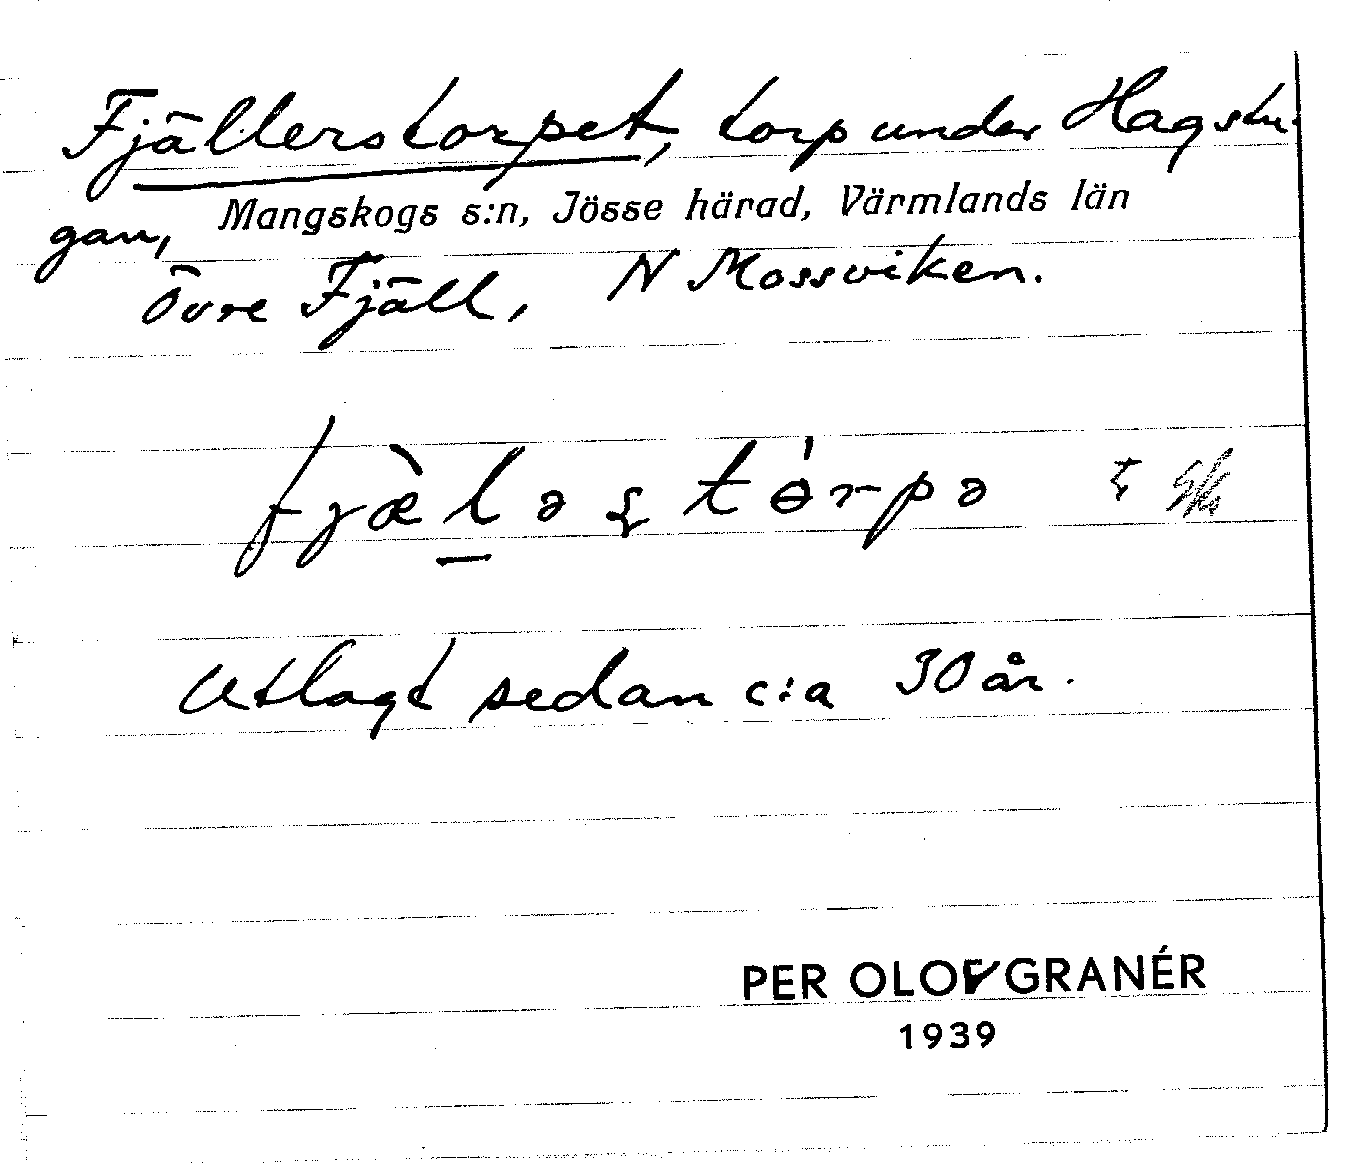 Fjällerstorpet, torp under Hagstu-
gan, Mangskogs s:n, Jösse härad, Värmlands län
Övre Fjäll, N Mossviken.
fjæ̀lsştɵ́rpə
Utlagt sedan c:a 30 år.
PER OLOF GRANÉR
1939